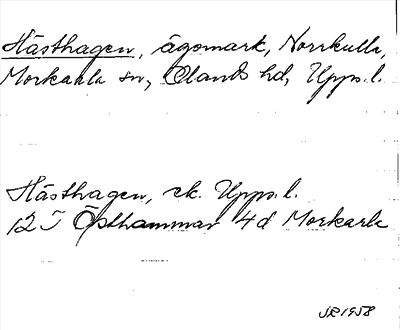 Hästhagen, ägomark, Norrkulla,
Morkarla sn, Olands hd, Upps.l.
Hästhagen, ek. Upps.l.
12I Östhammar 4d Morkarla
JR 1958